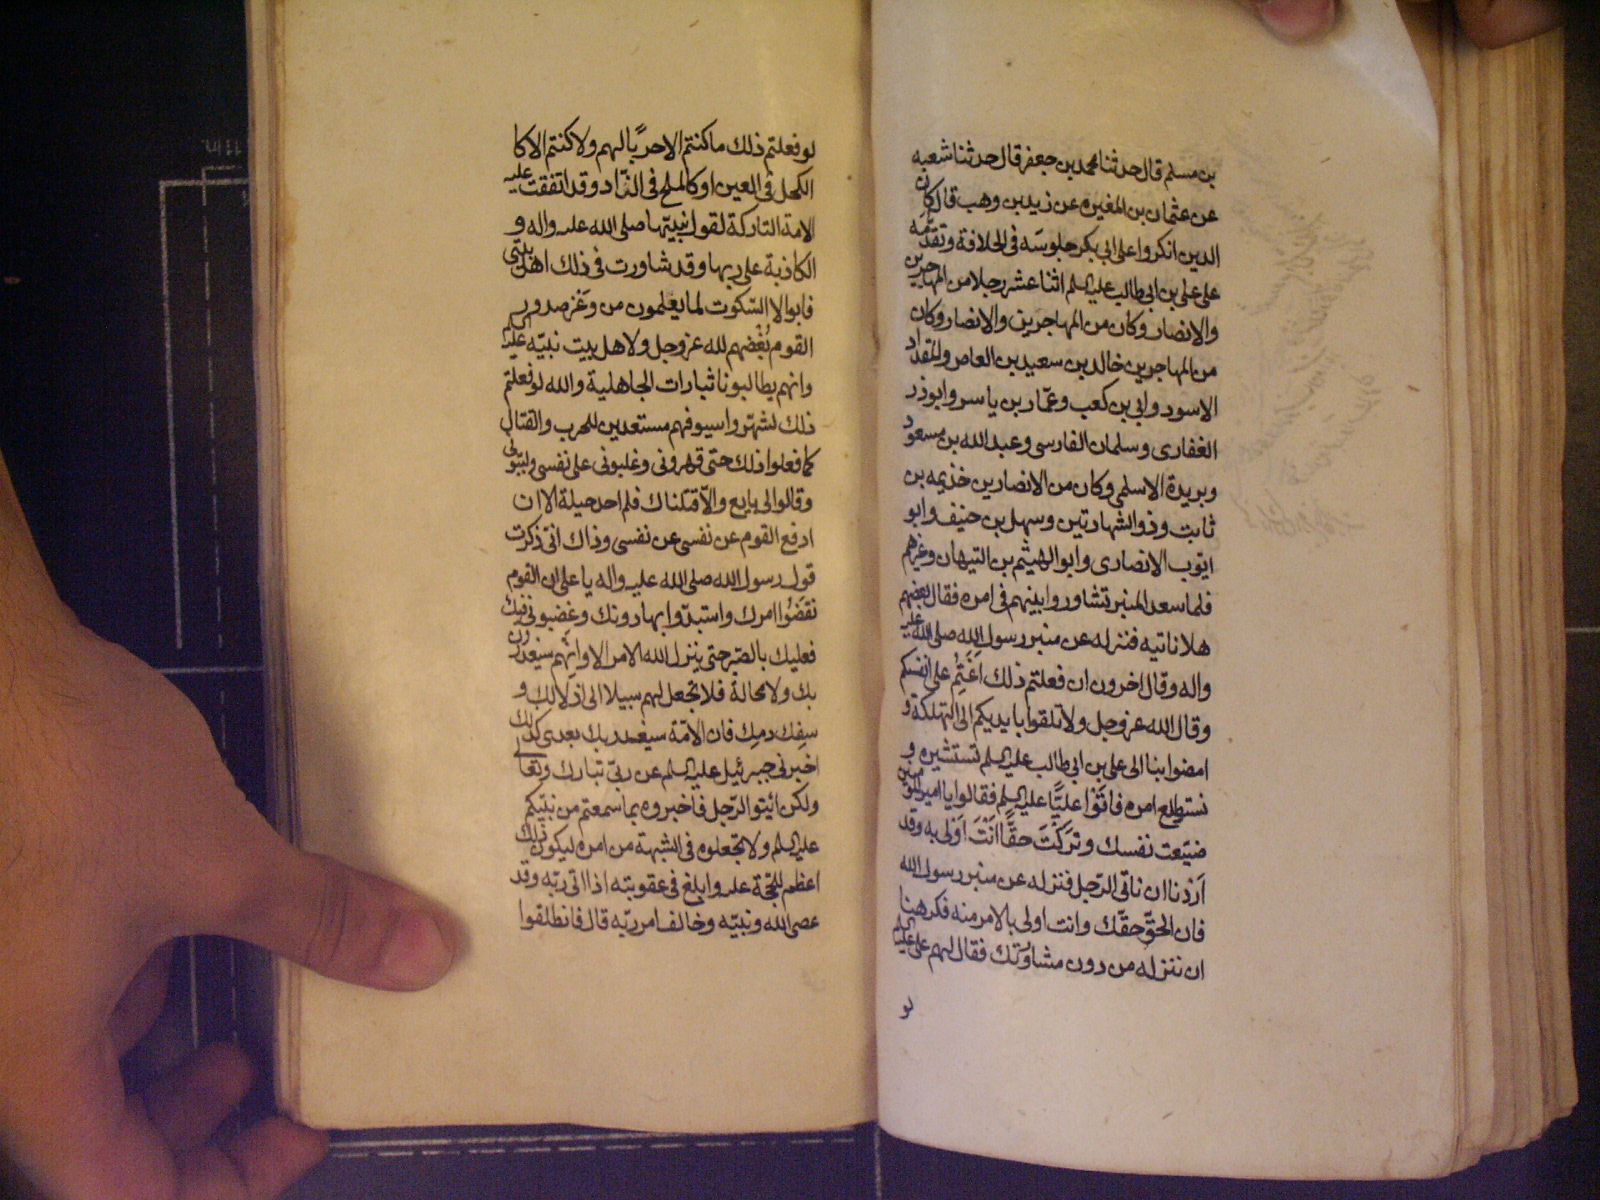 بن مسلم قال حدثنا محمد بن جعفر قال حدثنا شعبه
عن عثمان بن المغيره عن زيد بن وهب قال كان
الدين انكروا على ابي بكر جلوسه في الخلافة وتقدّمه
على علي بن ابي طالب عليه السلم اثنا عشر رجلا من المهاجرين
والانصار وكان من المهاجرين والانصار وكان
من المهاجرين خالد بن سعيد بن العاص والمقداد
الاسود وابي بن كعب وعمّار بن ياسر وابوذر
الغفارى وسلمان الفارسى وعبد الله بن مسعود
وبريدة الاسلمى وكان من الانصارين خذيمه بن
ثابت وذو الشهادتين وسهل بن حنيف وابو
ايّوب الانصارى وابو الهيثم بن التيهان وغيرهم
فلما سعد المنبر تشاوروا بينهم فى امره فقال بعضهم
هلا ناتيه فننزله عن منبر رسول الله صلى الله عليه
واله وقال اخرون ان فعلتم ذلك اَعَنْتُم على انفسكم
وقال الله عز وجل ولا تلقوا بايديكم الى التهلكة و
امضوا بنا الى على بن ابى طالب عليه السلم نستشيره و
نستطلع امره فاتَوْا عليًّا عليه السلم فقالوا يا امير المؤمنين
ضيّعت نفسك وتَرَكْتَ حقًّا اَنْتَ اَوْلى به وقد
اَرَدْنا ان ناتى الرّجل فننزله عن منبر رسول الله
فان الحقّ حقّك وانت اولى بالامر منه فكرهنا
ان ننزله من دون مشاورتك فقال لهم على عليه السلم
لو
لو فعلتم ذلك ما كنتم الا حربًا لهم ولا كنتم الا كا
الكحل فى العين او كالملح فى الزّاد وقد اتفقت عليه
الامة التاركة لقول نبيّها صلى الله عليه واله و
الكاذبة على ربها وقد شاورت فى ذلك اهل بيتى
فابوا الا السّكوت لما يعلمون من وَغَر صدور
القوم بُغْضهم لله عز وجل ولاهل بيت نبيّه عليهم السلم
وانهم يطالبونا ثبارات الجاهلية والله لو فعلتم
ذلك لشهروا سيوفهم مستعدين للحرب والقتال
كما فعلوا ذلك حتى قهرونى وغلبونى على نفسى ولبّبونى
وقالوا لى بايع والّا قتلناك فلم احد حيلة الا ان
ادفع القوم عن نفسى عن نفسى وذاك انّى ذكرت
قول رسول الله صلى الله عليه واله يا على ان القوم
نقَضُوا امرك واستبدّوا بها دونك وغضبونى فيك
فعليك بالصّبر حتى ينزل الله الامر الا وانّهم سيغدرون
بك ولا محالة فلا تجعل لهم سبيلا الى اذلالك و
سفِك دمِك فان الامّة سيغدر بك بعدى كذلك
اخبرنى جبرئيل عليه السلم عن ربّى تبارك وتعالى
ولكن ائيتو الرّجل فاخبروه بما سمعتم من نبيّكم
عليه السلم ولا تجعلوه فى الشبهة من امره ليكون ذلك
اعظم للحجّة عليه وابلغ فى عقوبته اذا اتى ربّه وقد
عصى الله ونبيّه وخالف امر ربّه قال فانطلقوا